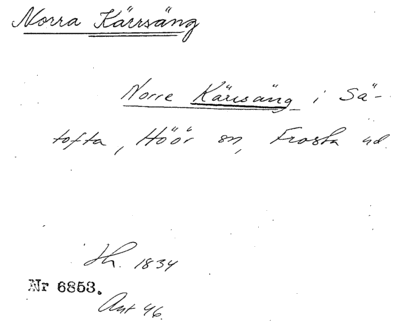 Norra Kärrsäng
Norre Kärrsäng i Sä-
tofta, Höör sn, Frosta hd
Lh. 1834
Nr 6853.
Ant 46.